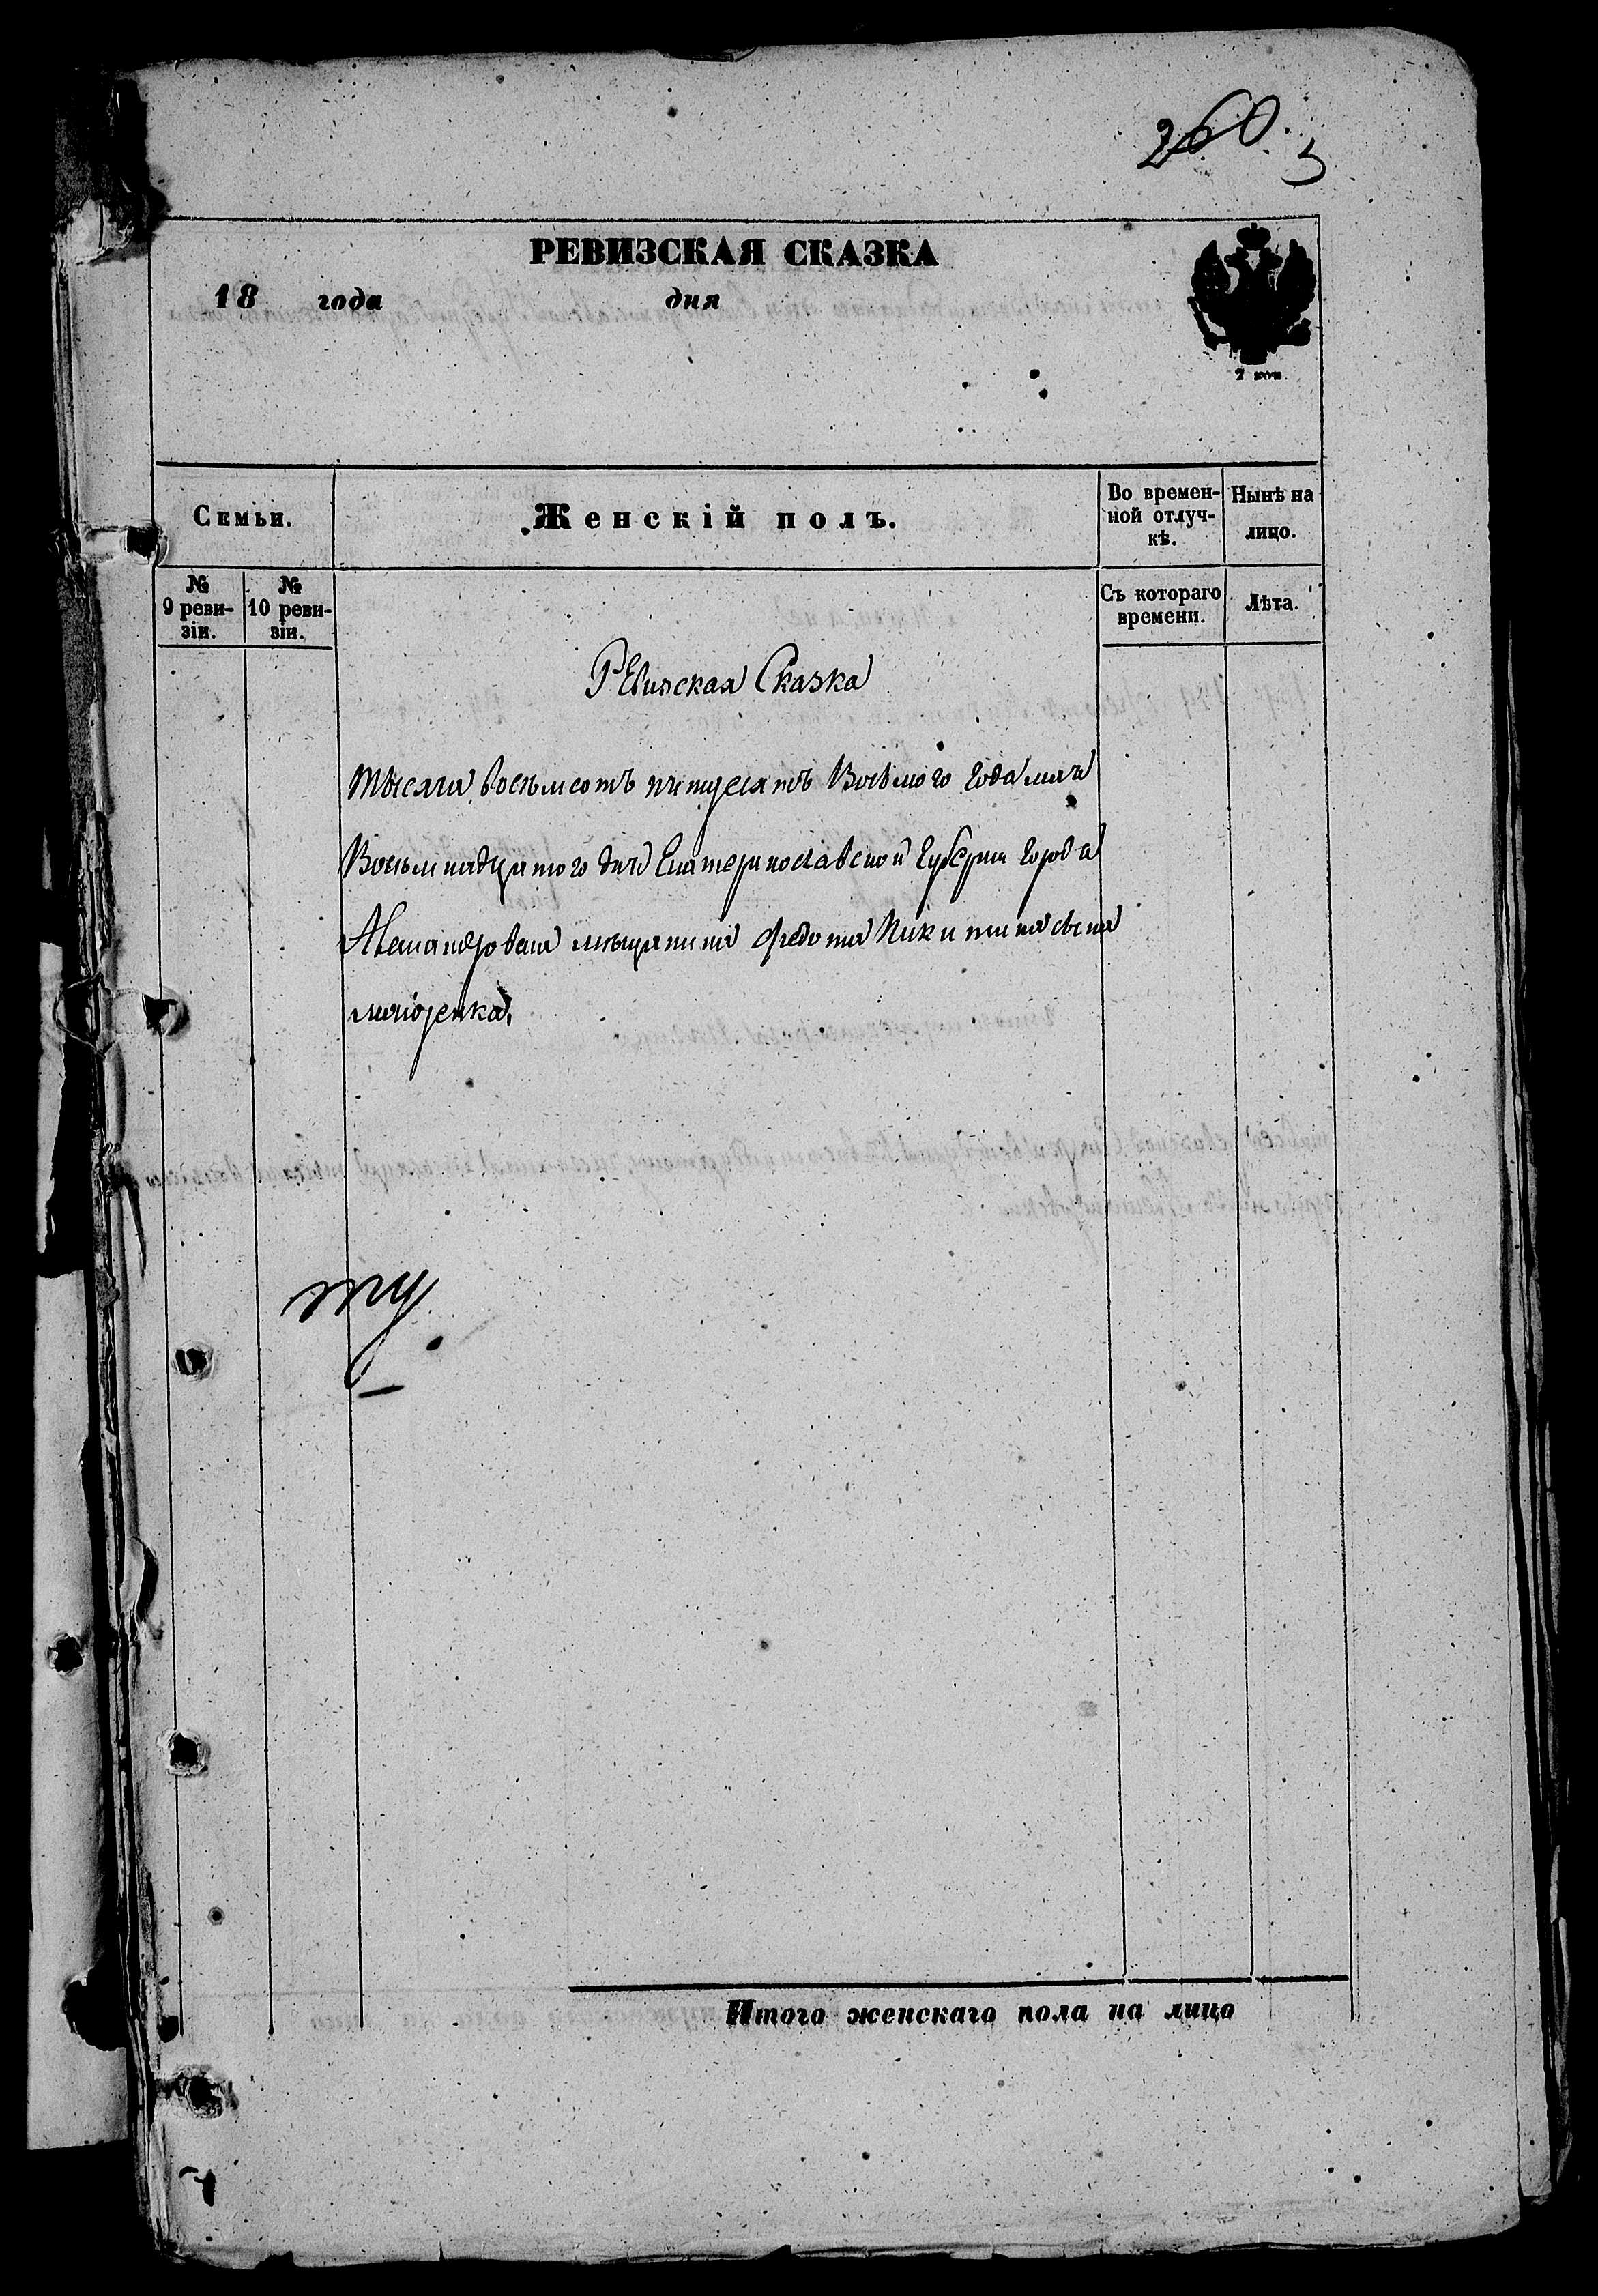 260.
РЕВИЗСКАЯ СКАЗКА
18 года дня
2 коп.
Семьи.
Женскій полъ.
Во времен-
ной отлуч-
кѣ.
Нынѣ на
лицо.
№
9 реви-
зіи.
№
10 реви-
зіи.
Съ котораго
времени.
Лѣта.
Ревизская Сказка
тысяча восемьсотъ пятдесятъ Восьмого года мая
Восьмнадцатого дня Екатеринославской Губерніи Города
Александровска мещанина Федота Никитина сына
Итого женскаго пола на лицо